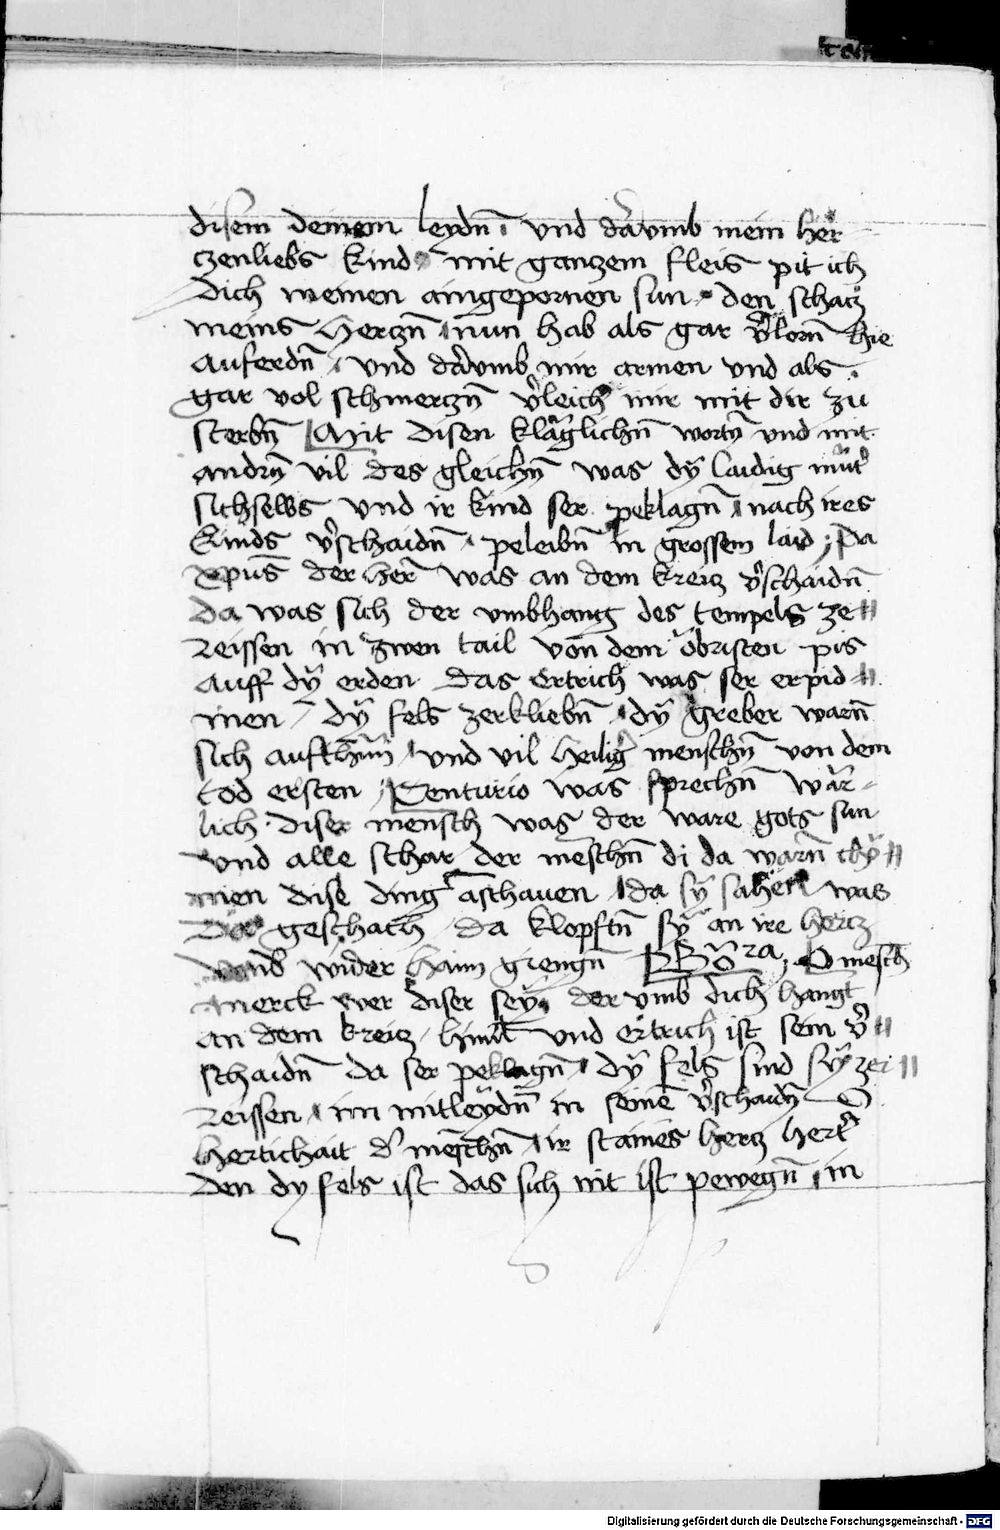 disem deinem leydn̄ und darvmb mein her
czenliebs kind mit ganczem fleis pit ich
dich meinen aingepornen sun den schacz
meins herczn̄ nun hab als gar v̄lorn̄ hie
auf erdn̄ und darvmb mir armen und als
gar vol schmerczn̄ v̄leich mir mit dir zu
sterbn̄ Mit disen kläglichn̄ wortn̄ und mit
andrn̄ vil des gleichn̄ was dy̎ laidig mut̄
sichselbs und ir kind ser peklagn̄ nach ires
kinds v̄schaidn̄ peleibn̄ in grossem laid Da
xpus̄ der her̄ was an dem kreicz v̄schaidn̄
da was sich der vmbhang des tempels ze
reissen in zwen tail von dem öbristen pis
auff dy̎ erden das ertrich was ser erpid
men dy̎ fels zerkliebn̄ dy̎ greber warn̄
sich aufthun̄ und vil heiliḡ menschn̄ von dem
tod ersten Centurio was sprechn̄ wär
lich diser mensch was der ware gots sun
und alle schar der meschn̄ di da warn̄ chy̎
men dise ding aschauen da sy̎ sahen was
da geschach da klopftn̄ sy̎ an ire hercz
und wider haim giengn̄ O mesch
merck wer diser sey̎ der vmb dich hangt
an dem kreicz himl und ertrich ist sein v̄
schaidn̄ da ser peklagn̄ dy̎ fels sind sy̎ zer
reissen im mitleydn̄ in seinē v̄schaidn̄ O
hertichait d̄ mēschn̄ ir staines hercz hert̄
den dy fels ist das sich nit ist pewegn̄ in
Digitalisierung gefördert durch die Deutsche Forschungsgemeinschaft - DFG